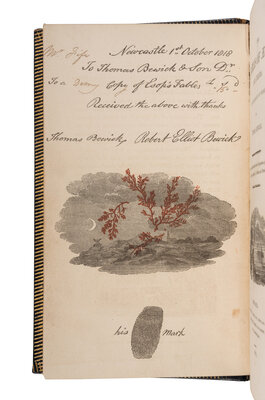 Newcastle 1st October 1818
To Thomas Bewick & Son Dr
To a Demy Copy of Esop's Fables £ s d
Received the above with thanks
Thomas Bewick Robert Elliot Bewick
his mark